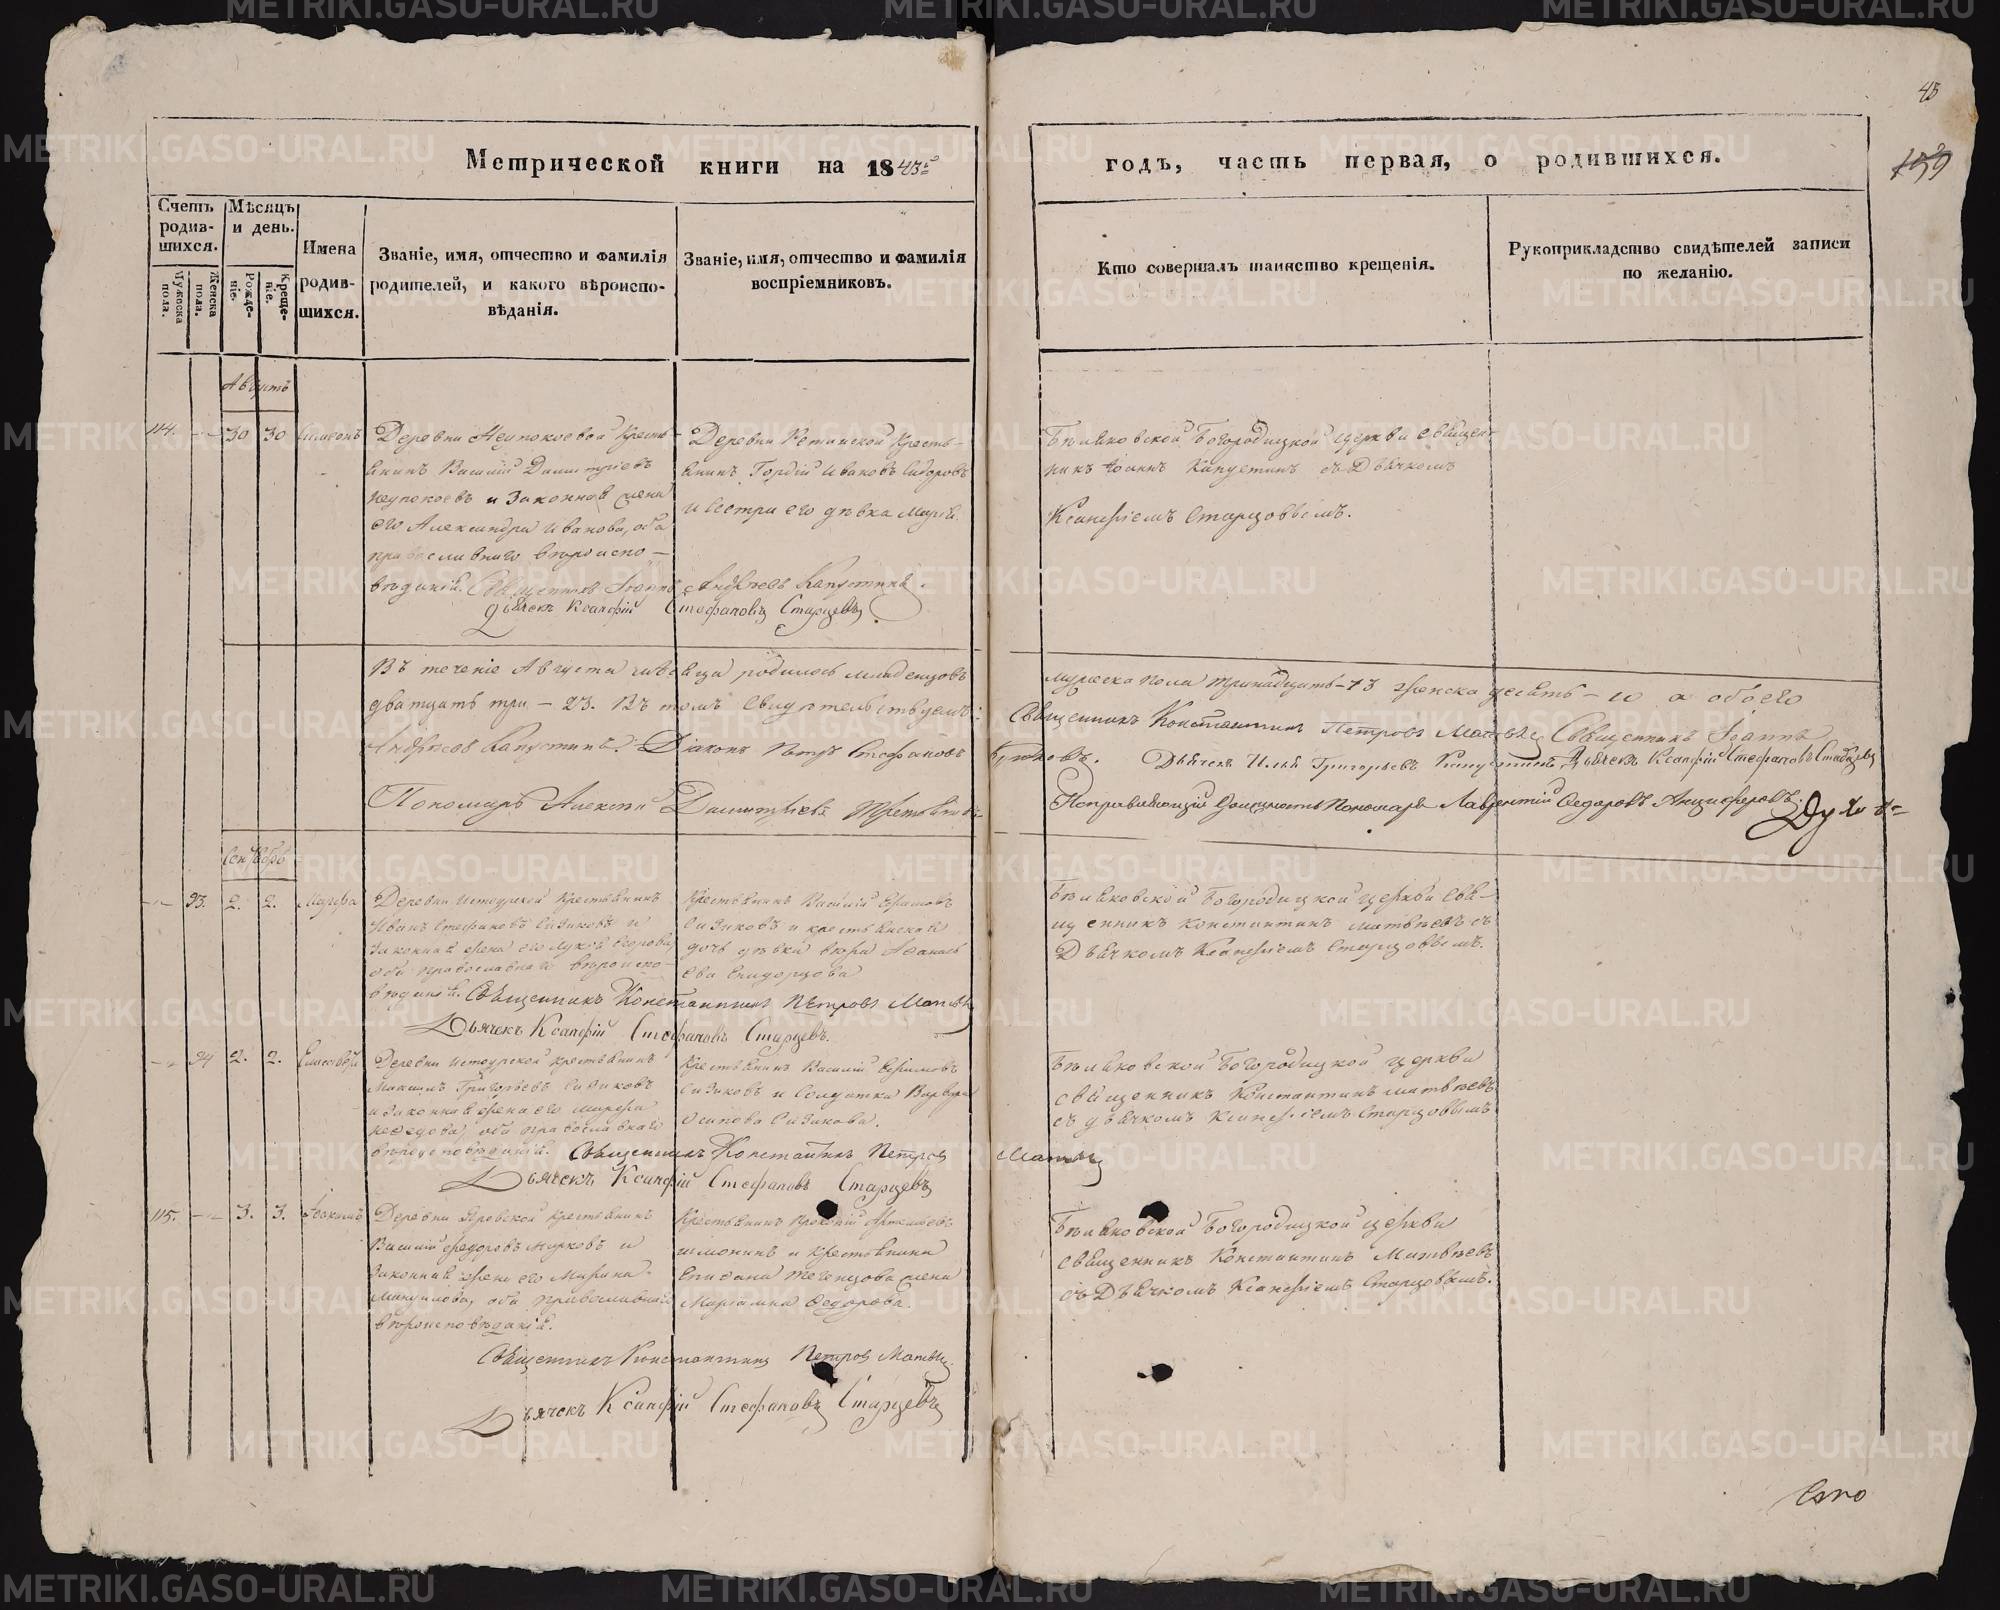 45
159
Метрической книги на 1843й
годъ, часть первая, о родившихся.
Счетъ родив-шихся.
Мужеска пола.
Женска пола.
Мѣсяцъ и день.
Рожде-ніе.
Креще-ніе.
Имена родив-шихся.
Званіе, имя, отчество и фамилія
родителей, и какого вѣроиспо-
вѣданія.
Званіе, имя, отчество и фамилія
воспріемниковъ.
Кто совершалъ таинство крещенія.
Рукоприкладство свидѣтелей записи
по желанію.
Августъ
114. 30 30 Симеонъ
Деревни Неупокоевой кресть-
янинъ Василій Димитріевъ
Неупокоевъ и законная жена
его Александра Иванова, оба
православнаго вѣроиспо-
вѣданія. Священникъ Іоаннъ Андреевъ Капустинъ.
Дьячекъ Ксанфій Стефановъ Старцевъ.
Деревни Кетинской кресть-
янинъ Гордій Ивановъ Сидоровъ
и сестра его дѣвка Марія.
Бѣляковской Богородицкой церкви священ-
никъ Іоаннъ Капустинъ съ Дьячкомъ
Ксанфіемъ Старцовымъ.
Въ теченіе Августа мѣсяца родилось младенцовъ
мужеска пола тринадцать - 13 женска десять - 10 а обоего
дватцать три - 23. Въ томъ свидѣтельствуемъ:
Священникъ Константинъ Петровъ Матвѣевъ Священникъ Іоаннъ
Андреевъ Капустинъ. Діаконъ Петръ Стефановъ
Дьячекъ Илья Григорьевъ Капустинъ Дьячекъ Ксанфій Стефановъ Старцевъ
Пономарь Алексій Димитріевъ Третьяковъ
Исправляющій должность Пономаря Лаврентій Федоровъ Анциферовъ.
Духо-
Сентябрь
93. 2. 2. Марѳа
Деревни Истоурской крестьянинъ
Иванъ Стефановъ Сизиковъ и
законная жена его Лукія Егорова,
оба православнаго вѣроиспо-
вѣданія. Священникъ Константинъ Петровъ Матвѣевъ
Дьячекъ Ксанфій Стефановъ Старцевъ.
Крестьянинъ Василій Ефимовъ
Сизиковъ и крестьянская
дочь дѣвка
Бѣляковской Богородицкой церкви Свя-
щенникъ Константинъ Матвѣевъ съ
Дьячкомъ Ксанфіемъ Старцовымъ.
94 2. 2. Елисаветъ
Деревни Истоурской крестьянинъ
Максимъ Григорьевъ Сизиковъ
и законная жена его Марфа
оба православнаго
вѣроисповѣданія. Священникъ Константинъ Петровъ Матвѣевъ
Дьячекъ Ксанфій Стефановъ Старцевъ
Крестьянинъ Василій Ефимовъ
Сизиковъ и Солдатка Варвара
Осипова Сизикова.
Бѣляковской Богородицкой церкви
священникъ Константинъ Матвѣевъ
съ дьячкомъ Ксанфіемъ Старцовымъ
115. 3. 3. Іоакимъ
Деревни Яровской крестьянинъ
Василій Федоровъ Мурковъ и
законная жена его Марина
Мануилова, оба православнаго
вѣроисповѣданія.
Священникъ Константинъ Петровъ Матвѣевъ.
Дьячекъ Ксанфій Стефановъ Старцевъ
Крестьянинъ Прокопій Артемьевъ
и крестьянина
жена
Маріамна Федорова.
Бѣляковской Богородицкой церкви
священникъ Константинъ Матвѣевъ
съ Дьячкомъ Ксанфіемъ Старцовымъ.
METRIKI.GASO-URAL.RU